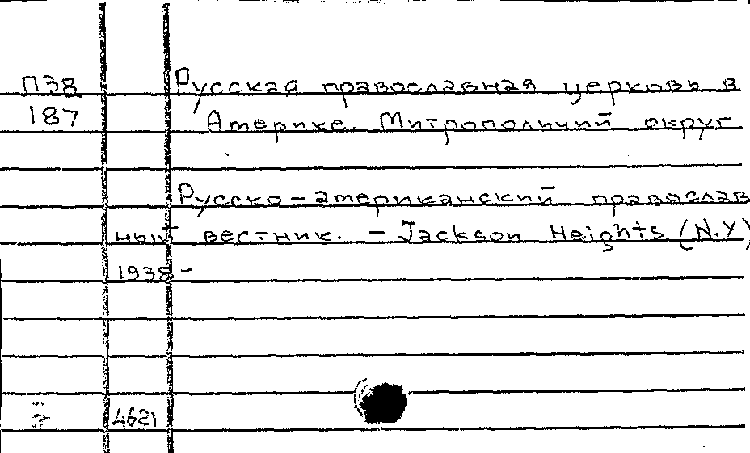 П38 Русская православная церковь в
187 Америке. Митрополичий округ
Русско-американский православ
ный вестник. - Jackson Heights (N.Y)
1938-
4621